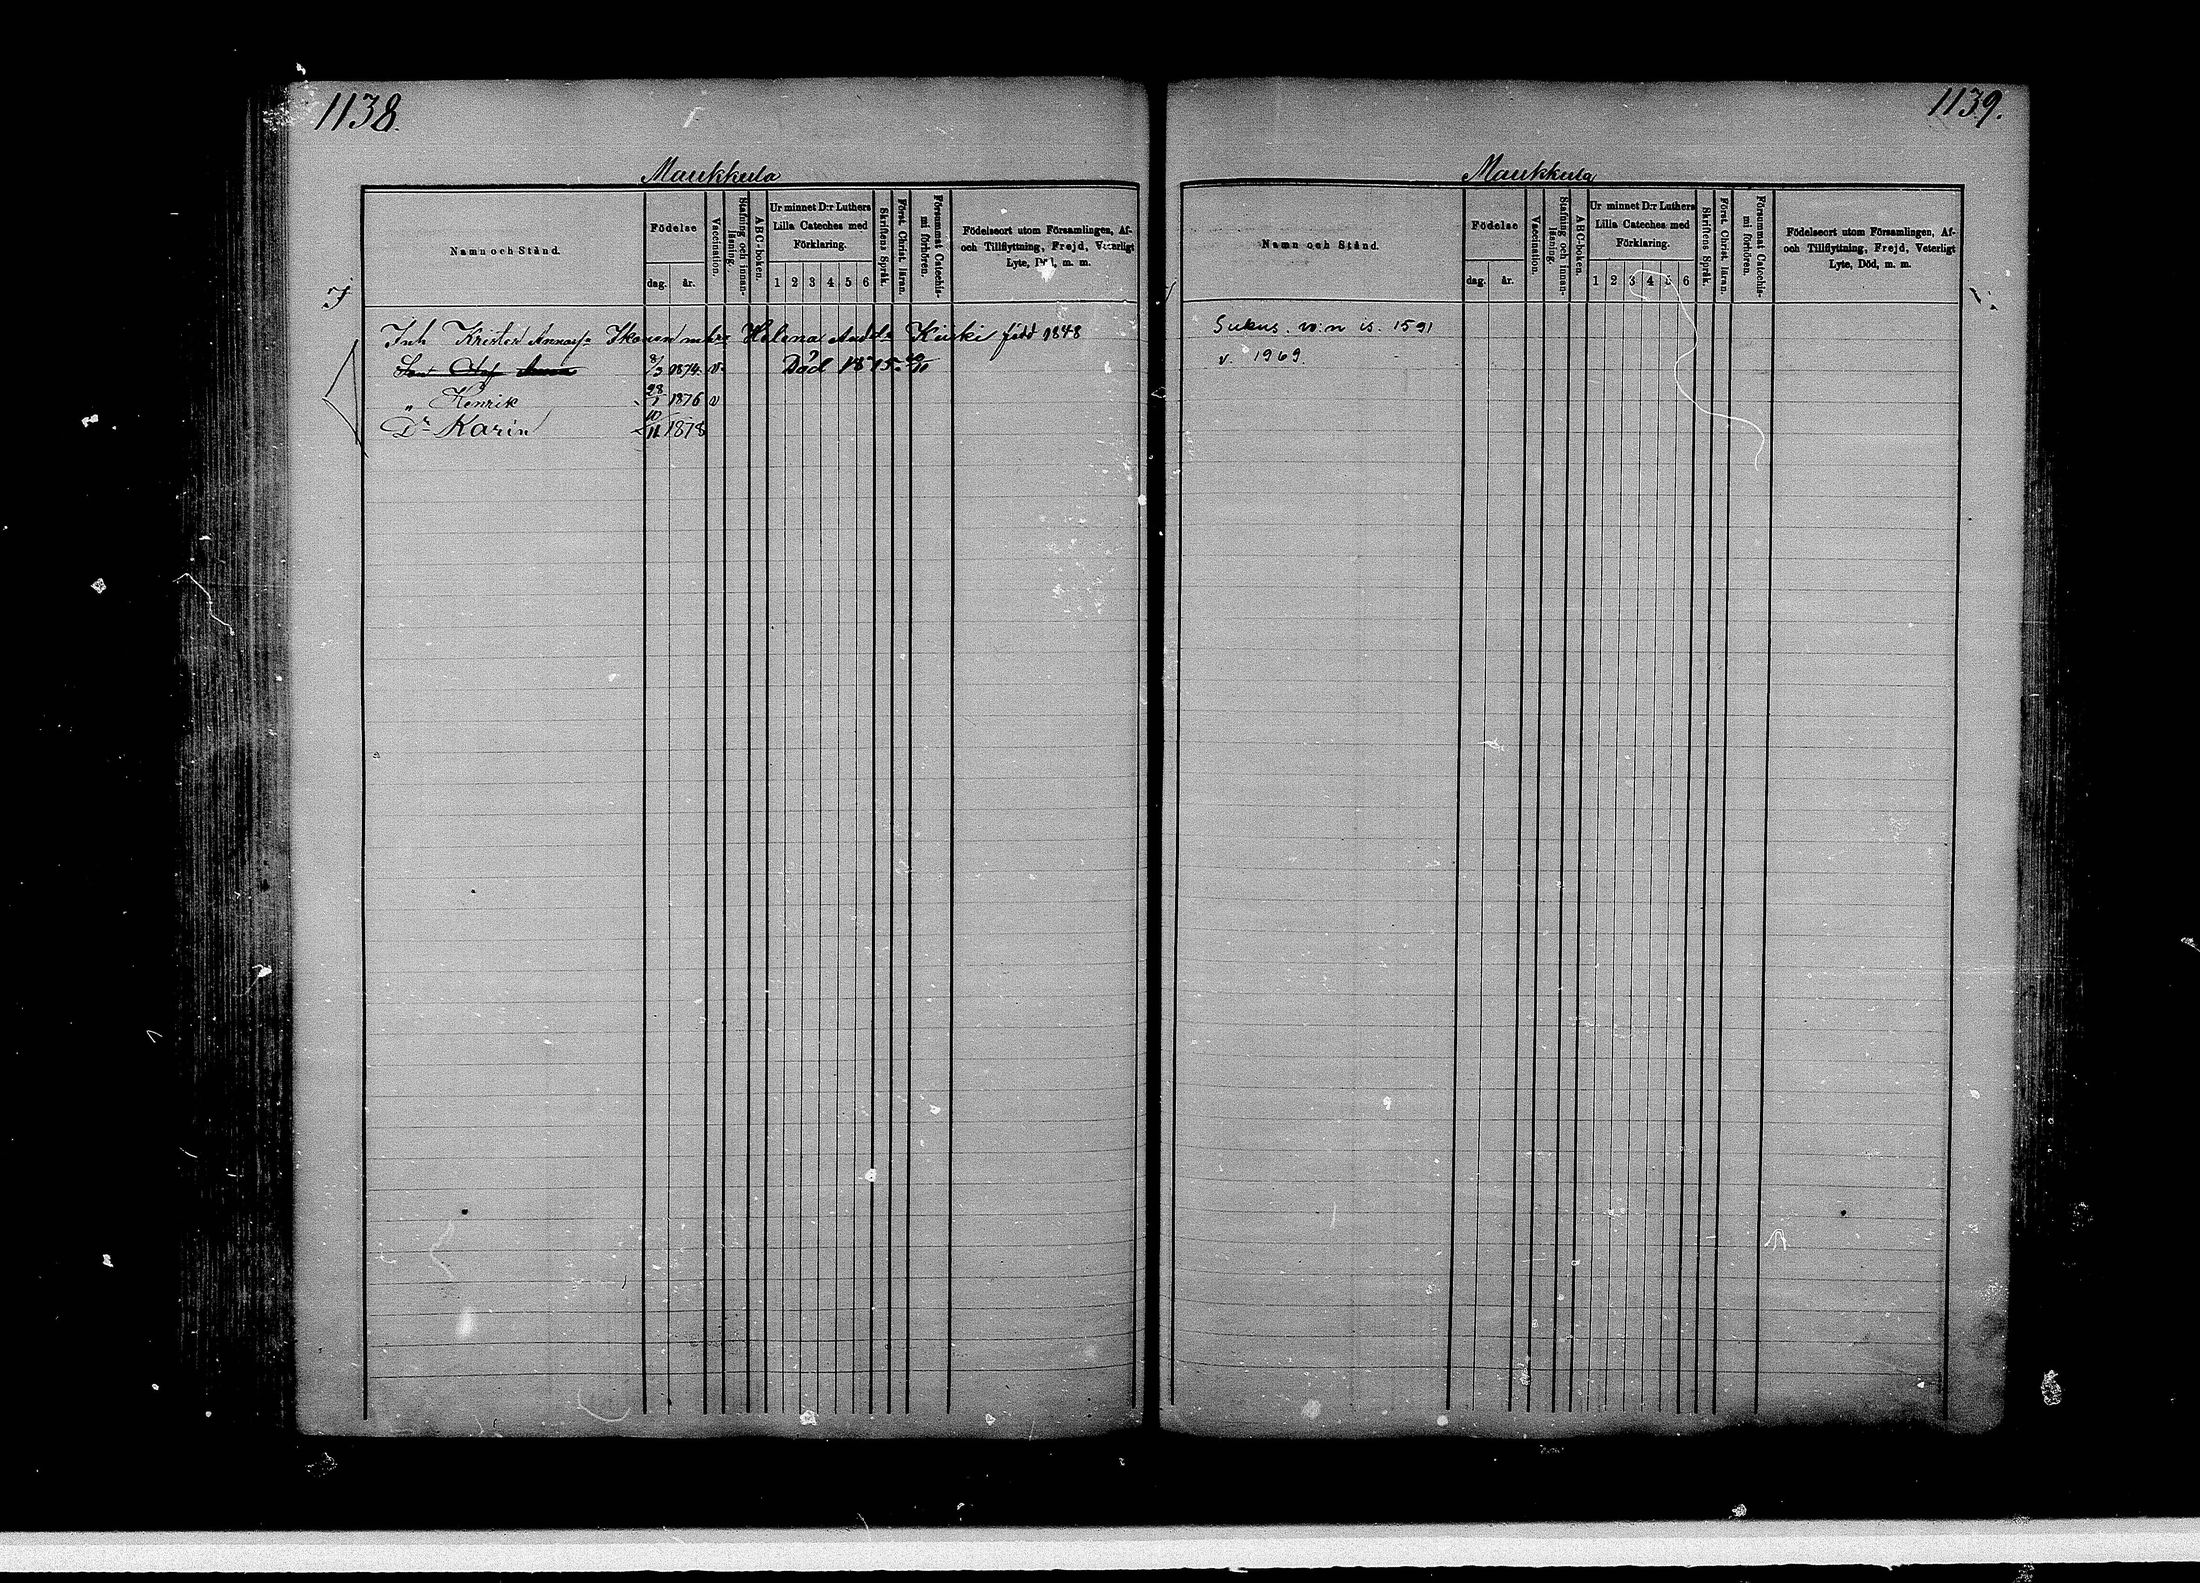 1138.
Maukkula
Namn och Stånd.
Födelse
dag. år.
Vaccination.
Stafning och innan-läsning.
ABC-boken.
Ur minnet D:r Luthers
Lilla Cateches med
Förklaring.
1 2 3 4 5 6
Skriftens Språk.
Först. Christ. läran.
Försummat Catechis-mi förhören.
Födelseort utom Församlingen, Af-
och Tillflyttning, Frejd, Veterligt
Lyte, Död, m. m.
Inh Krister Ikonen Helena Kiiski född 1848
8/3 1874. v. Död 1875
„ Henrik 28/1 1876 v
Dr Karin 10/11 1878
1139.
Maukkula
Namn och Stånd.
Födelse
dag. år.
Vaccination.
Stafning och innan-läsning.
ABC-boken.
Ur minnet D:r Luthers
Lilla Cateches med
Förklaring.
1 2 3 4 5 6
Skriftens Språk.
Först. Christ. läran.
Försummat Catechis-mi förhören.
Födelseort utom Församlingen, Af-
och Tillflyttning, Frejd, Veterligt
Lyte, Död, m. m.
Sukus. v:n is. 1591
v. 1969.